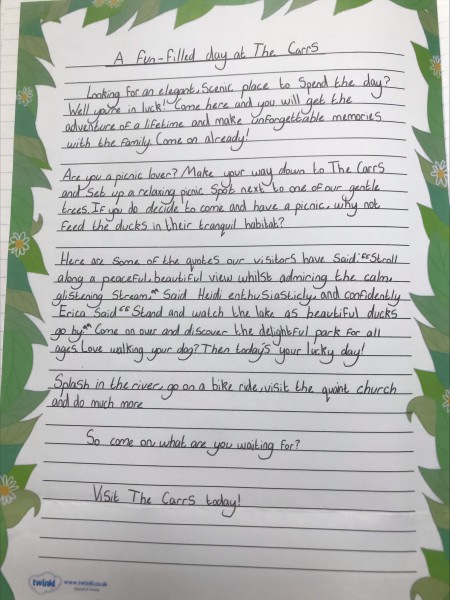 A Fun-Filled day at The Carrs
Looking for an elegant, Scenic place to Spend the day?
Well you're in luck! Come here and you will get the
adventure of a lifetime and make unforgettable memories
with the family. Come on already!
Are you a picnic lover? Make your way down to The Carrs
and Set up a relaxing picnic Spot next to one of our gentle
trees. If you do decide to come and have a picnic, why not
feed the ducks in their tranquil habitat?
Here are Some of the quotes our visitors have Said: "Stroll
along a peaceful, beautiful view whilst admiring the calm,
glistening Stream." Said Heidi enthusiasticly, and confidently
Erica Said "Stand and watch the lake as beautiful ducks
go by" Come on over and discover the delightful park for all
ages. Love walking your dog? Then today's your lucky day!
Splash in the river, go on a bike ride, visit the quaint church
and do much more
So come on, what are you waiting for?
Visit The Carrs today!
twinkl www.twinkl.co.uk